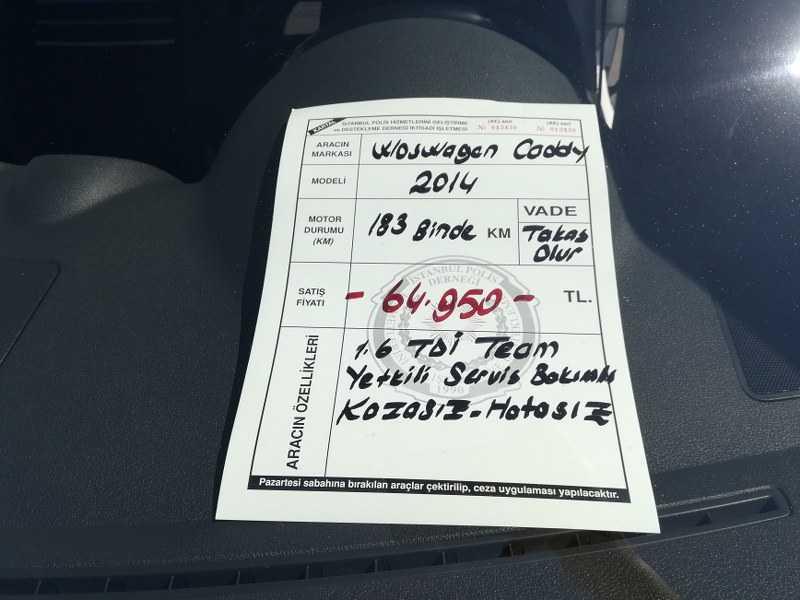 KARTAL
İSTANBUL POLİS HİZMETLERİNİ GELİŞTİRME
ve DESTEKLEME DERNEĞİ İKTİSADİ İŞLETMESİ
ARACIN MARKASI
Woswagen Caddy
MODELİ
2014
MOTOR DURUMU (KM)
183 Binde KM
VADE
Takas Olur
SATIŞ FİYATI
- 64.950 - TL.
ARACIN ÖZELLİKLERİ
1.6 TDİ Team
Yetkili Servis Bakımlı
Kazasız - Hatasız
İSTANBUL POLİS
DERNEĞİ
1990
Pazartesi sabahına bırakılan araçlar çektirilip, ceza uygulaması yapılacaktır.